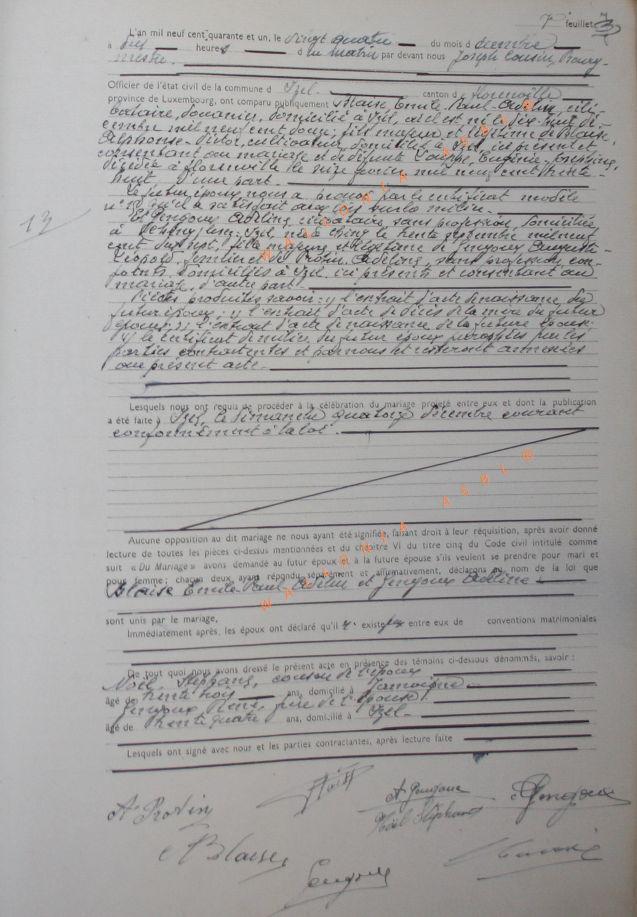 7e feuillet
L'an mil neuf cent quarante et un, le vingt quatre du mois d écembre
à dix heures d u matin par devant nous Joseph Cousin, Bourg-
mestre.
Officier de l'état civil de la commune d Izel. canton d Florenville
province de Luxembourg, ont comparu publiquement Blaise Emile Paul Adelin, céli-
bataire, douanier, domicilié à Izel,
cembre mil neuf cent douze, fils majeur et légitime de Blaise,
Alphonse Victor, cultivateur, domicilié à Izel, ici présent et
consentant au mariage et de défunte Eugénie,
décédée à Florenville le seize février mil neuf cent trente
huit d'une part.
Le futur époux nous a prouvé par le certificat modèle
qu'il a satisfait aux lois sur la milice.
Et Gengoux Adeline, célibataire, sans profession, domiciliée
à Izel née à Chiny le trente septembre mil neuf
cent dix sept, fille majeure et légitime de Gengoux Auguste
Léopold, et de Protin Adeline, sans profession, con-
joints, domiciliés à Izel, ici présents et consentant au
mariage, d'autre part.
Pièces produites savoir: 1) l'extrait d'acte de naissance du
futur époux; 2) l'extrait d'acte de décès de la mère du futur
époux; 3) l'extrait d'acte de naissance de la future épouse;
4) le certificat de milice du futur époux paraphées par les
parties contractantes et par nous et resteront annexées
au présent acte.
13
Lesquels nous ont requis de procéder à la célébration du mariage projeté entre eux et dont la publication
a été faite à Izel, le dimanche quatorze décembre courant
conformément à la loi.
Aucune opposition au dit mariage ne nous ayant été signifiée, faisant droit à leur réquisition, après avoir donné
lecture de toutes les pièces ci-dessus mentionnées et du chapitre VI du titre cinq du Code civil intitulé comme
suit « Du Mariage » avons demandé au futur époux et à la future épouse s'ils veulent se prendre pour mari et
pour femme; chacun d'eux ayant répondu séparément et affirmativement, déclarons au nom de la loi que
Blaise Emile Paul Adelin et Gengoux Adeline
sont unis par le mariage,
Immédiatement après, les époux ont déclaré qu'il n' existe pas entre eux de conventions matrimoniales
De tout quoi nous avons dressé le présent acte en présence des témoins ci-dessous dénommés, savoir :
Noël Stéphane, cousin de l'époux
âgé de trente trois ans, domicilié à Jamoigne
Gengoux René, frère de l'épouse
âgé de trente quatre ans, domicilié à Izel.
Lesquels ont signé avec nous et les parties contractantes, après lecture faite
A Protin
A Gengoux
Noël Stéphane
A Gengoux
A Blaise
Gengoux
WALLONIA ASBL ©
WALLONIA ASBL ©